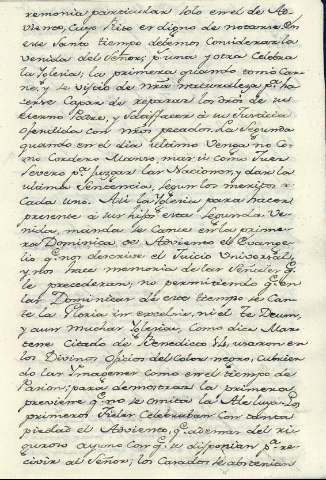 remonia particular solo en el de Ad-
viento, cuyo Rito es digno de notarse. En
ese Santo tiempo debemos considerar la
venida del Señor; pr una y otra celebra
la Iglesia; la primera quando tomó Car-
ne, y se vistió de nra naturaleza pa ha-
cerse capaz de reparar los dros de su
Eterno Padre, y satisfacer à su Justicia
ofendida con nros pecados. La Segunda
quando en el dia ultimo venga no co-
mo Cordero Manso, mas si como Juez
Severo pa juzgar las Naciones, y dar la
ultima Sentencia, segun los meritos de
Cada uno. Asi la Iglesia para hacer
presente à sus hijos esta Segunda Ve-
nida, manda se Cante en la prime-
ra Dominica de Adviento el Evange-
lio qe nos descrive el Juicio Universal,
y nos hace memoria de las Señales qe
le precederan, no permitiendo qe en
las Dominicas de este tiempo se Can-
te la Gloria in excelsis, ni el Te Deum,
y aun muchas Yglesias, Como dice Mar-
tene Citado de Benedicto 14, usaron en
los Divinos Oficios del Color negro, cubrien-
do las Imagenes como en el tiempo de
Pasion; para demostrar la primera
previene qe no se omita la Aleluya. Los
primeros Fieles Celebraban con tanta
piedad el Adviento, qe ademas del ri-
guroso ayuno con qe se disponian pa re-
civir al Señor, los Casados se abstenian